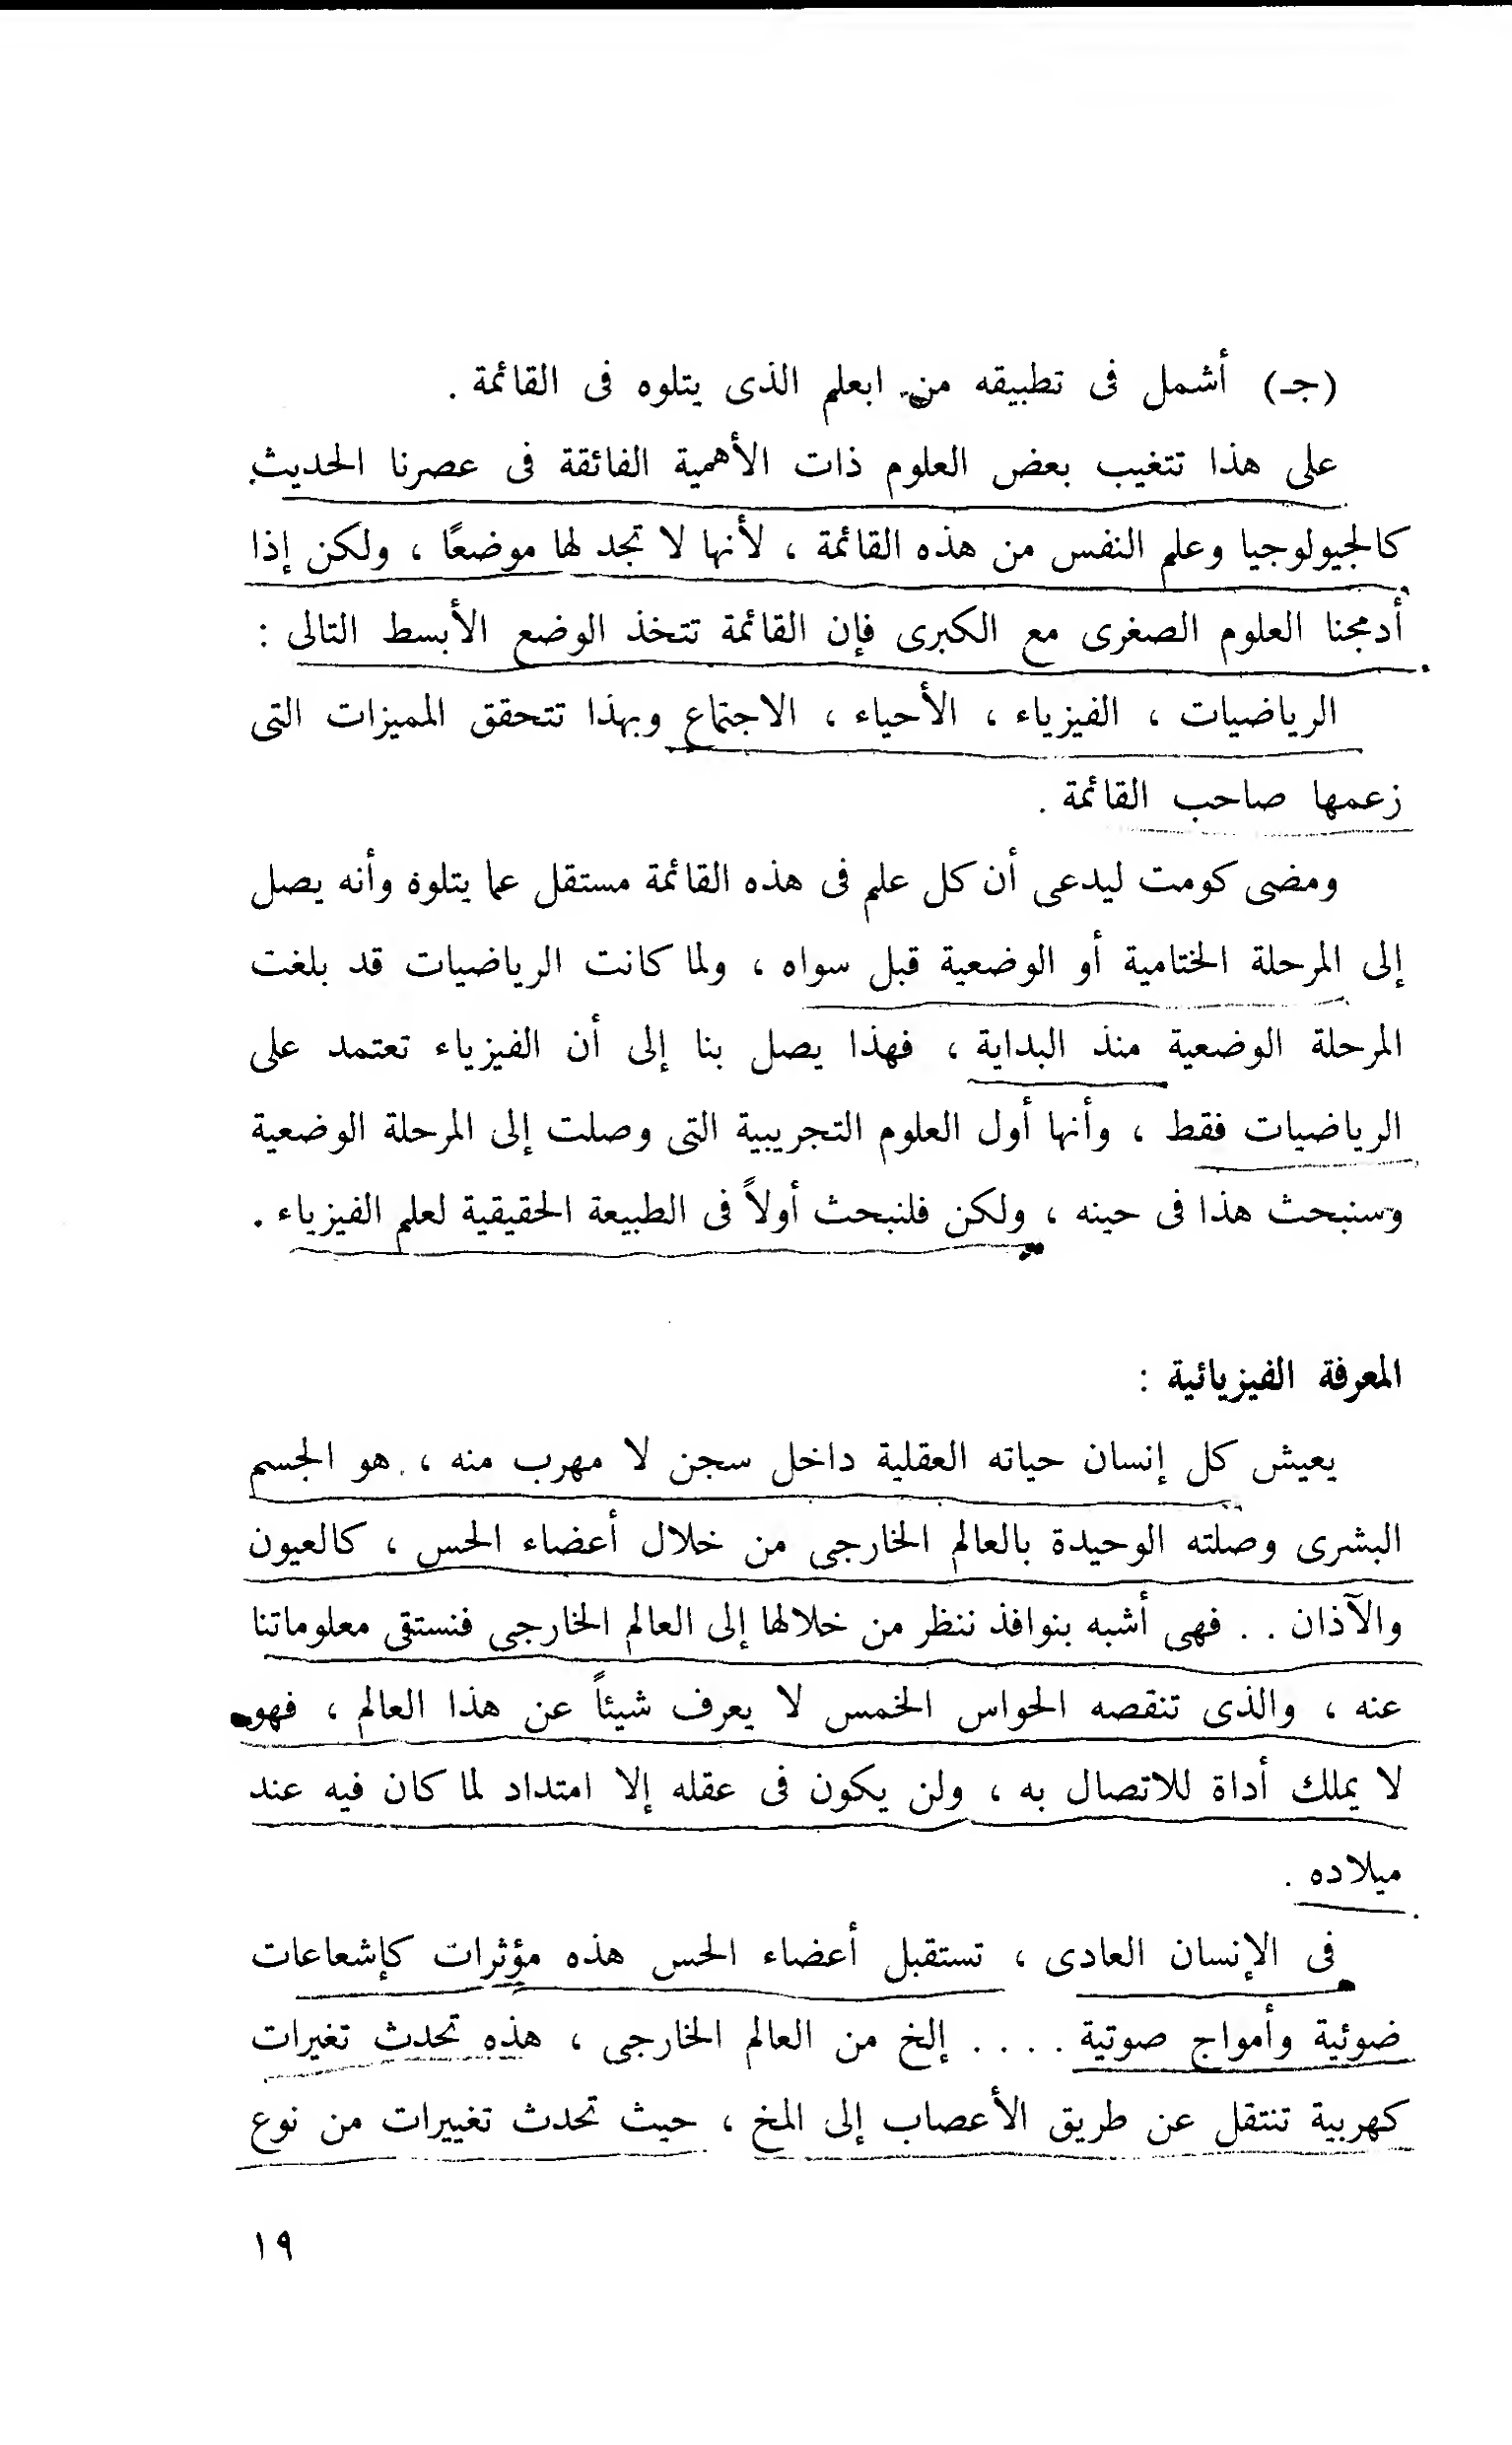 (جـ) أشمل فى تطبيقه من ابعلم الذى يتلوه فى القائمة .
على هذا تتغيب بعض العلوم ذات الأهمية الفائقة فى عصرنا الحديث
كالجيولوجيا وعلم النفس من هذه القائمة ، لأنها لا تجد لها موضعًا ، ولكن إذا
أدمجنا العلوم الصغرى مع الكبرى فإن القائمة تتخذ الوضع الأبسط التالى :
الرياضيات ، الفيزياء ، الأحياء ، الاجتماع وبهذا تتحقق المميزات التى
زعمها صاحب القائمة .
ومضى كومت ليدعى أن كل علم فى هذه القائمة مستقل عما يتلوة وأنه يصل
إلى المرحلة الختامية أو الوضعية قبل سواه ، ولما كانت الرياضيات قد بلغت
المرحلة الوضعية منذ البداية ، فهذا يصل بنا إلى أن الفيزياء تعتمد على
الرياضيات فقط ، وأنها أول العلوم التجريبية التى وصلت إلى المرحلة الوضعية
وسنبحث هذا فى حينه ، ولكن فلنبحث أولاً فى الطبيعة الحقيقية لعلم الفيزياء .
المعرفة الفيزيائية :
يعيش كل إنسان حياته العقلية داخل سجن لا مهرب منه ، هو الجسم
البشرى وصلته الوحيدة بالعالم الخارجى من خلال أعضاء الحس ، كالعيون
والآذان . . فهى أشبه بنوافذ ننظر من خلالها إلى العالم الخارجى فنستقى معلوماتنا
عنه ، والذى تنقصه الحواس الخمس لا يعرف شيئاً عن هذا العالم ، فهو
لا يملك أداة للاتصال به ، ولن يكون فى عقله إلا امتداد لما كان فيه عند
ميلاده .
فى الإنسان العادى ، تستقبل أعضاء الحس هذه مؤثرات كإشعاعات
ضوئية وأمواج صوتية . . . . إلخ من العالم الخارجى ، هذه تحدث تغيرات
كهربية تنتقل عن طريق الأعصاب إلى المخ ، حيث تحدث تغييرات من نوع
١٩